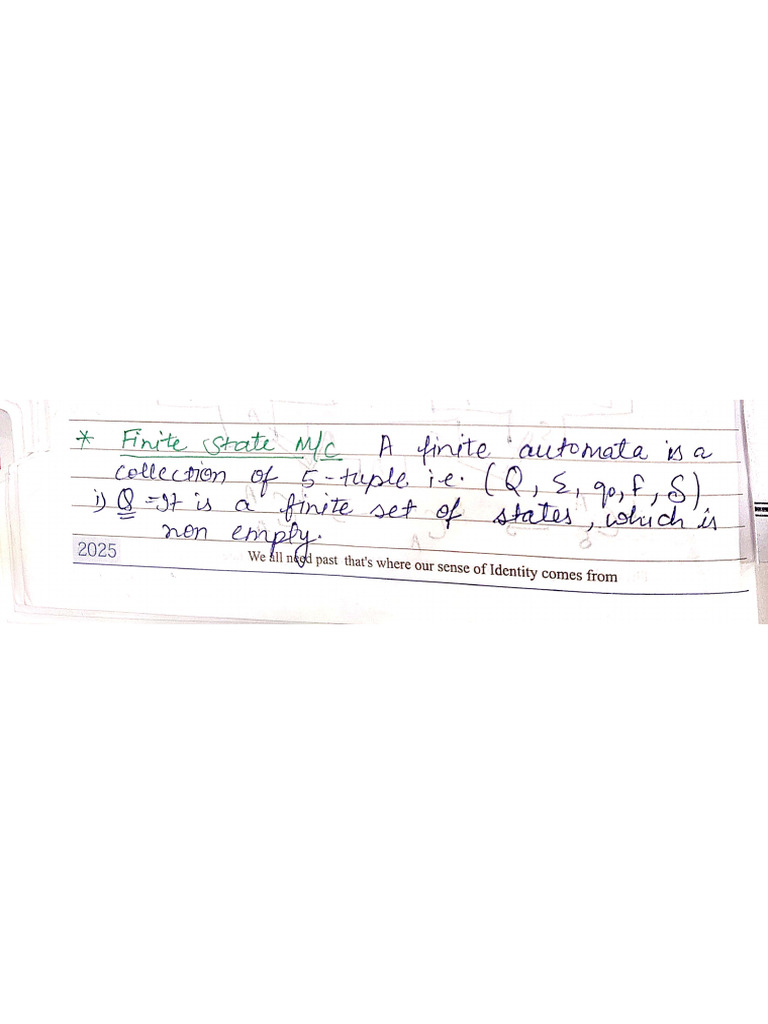 * Finite State M/C A finite automata is a
collection of 5-tuple i.e. (Q, Σ, q0, F, δ)
i) Q = It is a finite set of states, which is
non empty.
2025 We all need past that's where our sense of Identity comes from